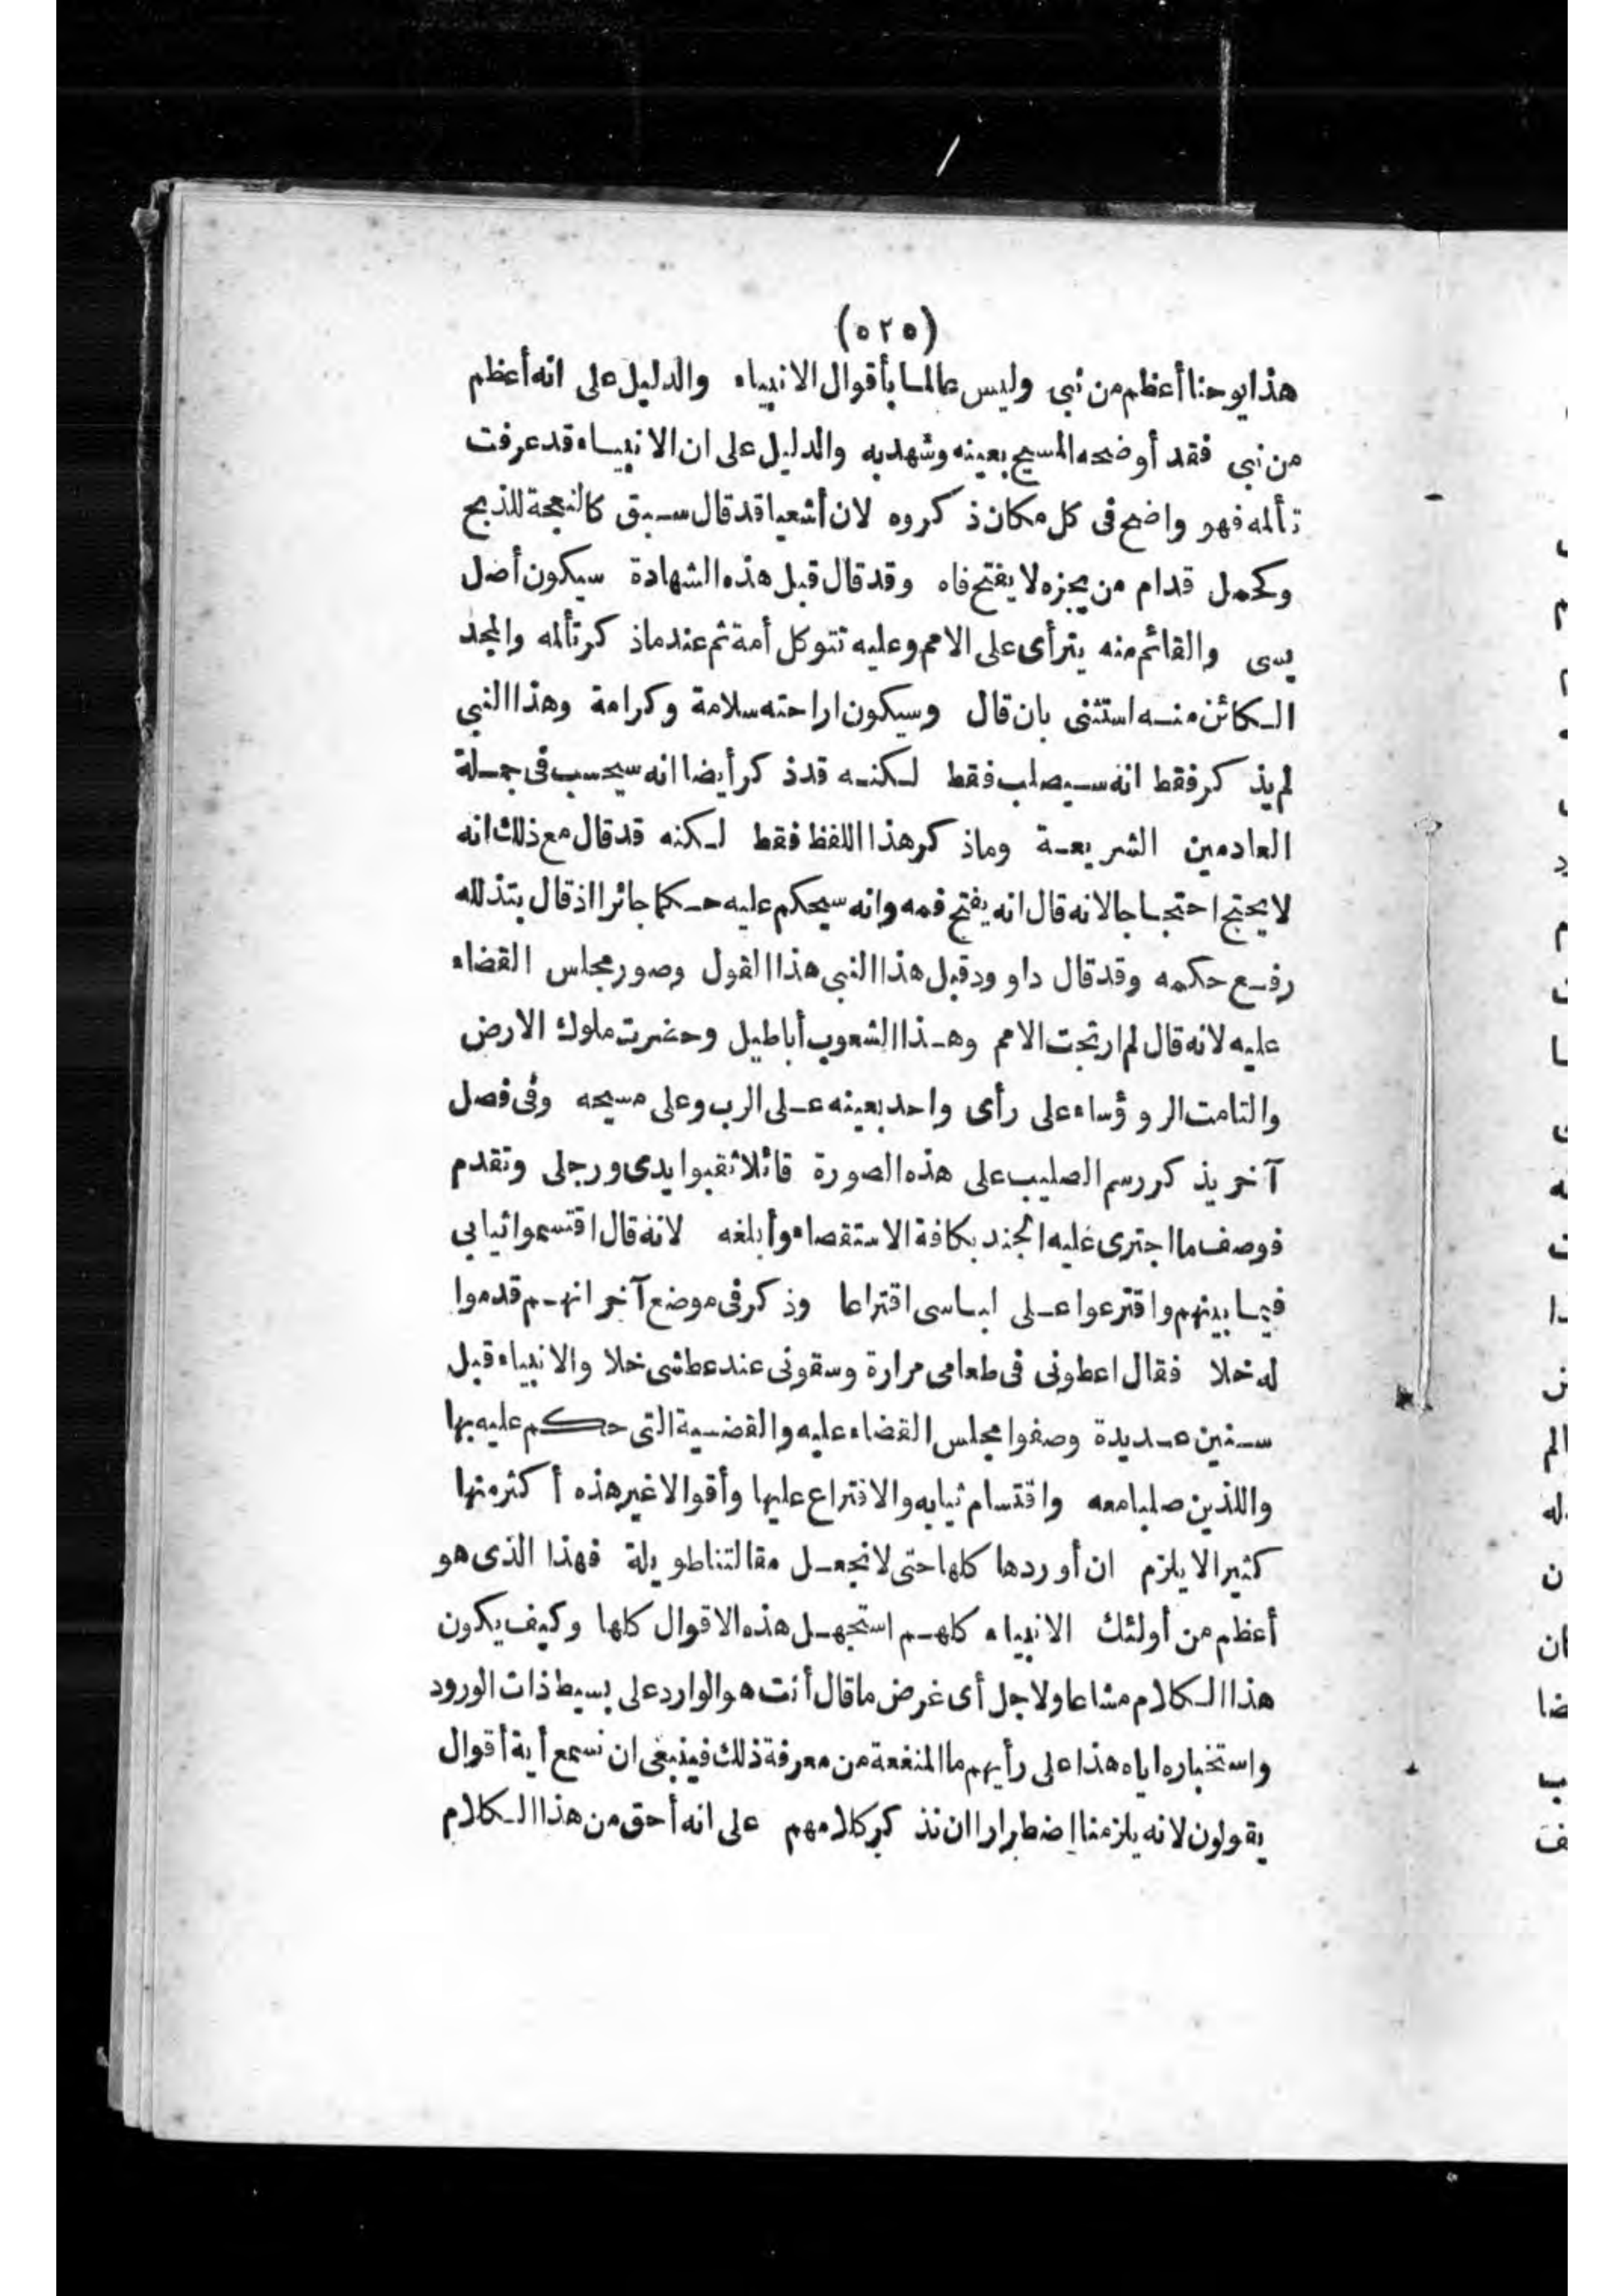 (٥٢٥)
هذا يوحنا أعظم من نبي وليس عالما بأقوال الانبياء والدليل على انه أعظم
من نبي فقد أوضحه المسيح بعينه وشهد به والدليل على ان الانبياء قد عرفت
تألمه فهو واضح فى كل مكان ذكروه لان أشعيا قد قال سبق كالنعجة للذبح
وكحمل قدام من يجزه لا يفتح فاه وقد قال قبل هذه الشهادة سيكون أصل
يسى والقائم منه يترأى على الامم وعليه تتوكل أمة ثم عند ماذكر تألمه والمجد
الكائن منه استثنى بان قال وسيكون اراحته سلامة وكرامة وهذا النبي
لم يذكر فقط انه سيصلب فقط لكنه قد ذكر أيضا انه سيحسب فى جملة
العادمين الشريعة وماذكر هذا اللفظ فقط لكنه قد قال مع ذلك انه
لا يحتج احتجاجا لانه قال انه يفتح فمه وانه سيحكم عليه حكما جائرا اذ قال بتذلله
رفع حكمه وقد قال داوود قبل هذا النبي هذا القول وصور مجلس القضاء
عليه لانه قال لم ارتجت الامم وهذا الشعوب أباطيل وحضرت ملوك الارض
والتامت الروؤساء على رأى واحد بعينه على الرب وعلى مسيحه وفى فصل
آخر يذكر رسم الصليب على هذه الصورة قائلا ثقبوا يدى ورجلى وتقدم
فوصف ما اجترى عليه الجند بكافة الاستقصاء وأبلغه لانه قال اقتسموا ثيابي
فيما بينهم واقترعوا على لباسى اقتراعا وذكر فى موضع آخر انهم قدموا
له خلا فقال اعطونى فى طعامى مرارة وسقونى عند عطشى خلا والانبياء قبل
سنين عديدة وصفوا مجلس القضاء عليه والقضية التى حكم عليه بها
واللذين صلبا معه واقتسام ثيابه والاقتراع عليها وأقوالا غير هذه أكثر منها
كثيرا لا يلزم ان أوردها كلها حتى لا نجعل مقالتنا طويلة فهذا الذى هو
أعظم من أولئك الانبياء كلهم استجهل هذه الاقوال كلها وكيف يكون
هذا الكلام مشاعا ولاجل أى غرض ما قال أنت هو الوارد على بسيط ذات الورود
واستخباره اياه هذا على رأيهم ما المنفعة من معرفة ذلك فينبغى ان نسمع أية أقوال
يقولون لانه يلزمنا اضطرارا ان نذكر كلامهم على انه أحق من هذا الكلام